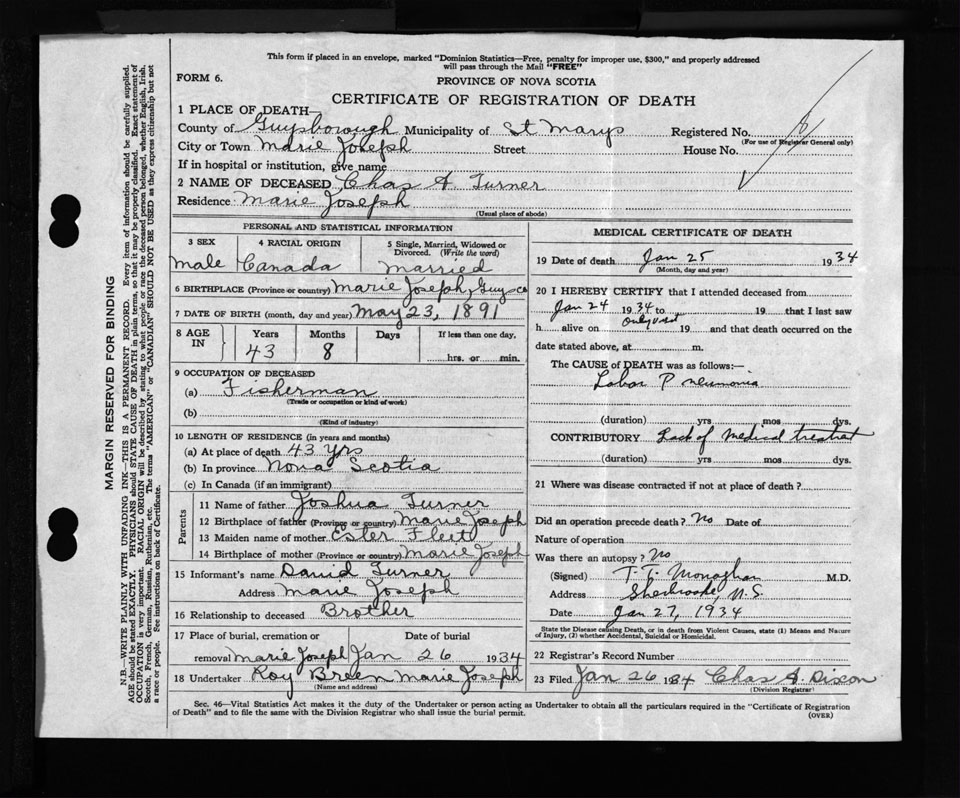 This form if placed in an envelope, marked "Dominion Statistics—Free, penalty for improper use, $300," and properly addressed
will pass through the Mail "FREE"
FORM 6.
PROVINCE OF NOVA SCOTIA
CERTIFICATE OF REGISTRATION OF DEATH
1 PLACE OF DEATH—
County of Guysborough Municipality of St Marys Registered No.
(For use of Registrar General only)
City or Town Marie Joseph Street House No.
If in hospital or institution, give name
2 NAME OF DECEASED Chas A. Turner
Residence Marie Joseph
(Usual place of abode)
PERSONAL AND STATISTICAL INFORMATION
3 SEX 4 RACIAL ORIGIN 5 Single, Married, Widowed or Divorced. (Write the word)
Male Canada Married
6 BIRTHPLACE (Province or country) Marie Joseph, Guys co
7 DATE OF BIRTH (month, day and year) May 23, 1891
8 AGE IN Years Months Days If less than one day,
43 8 hrs. or min.
9 OCCUPATION OF DECEASED
(a) Fisherman
(Trade or occupation or kind of work)
(b)
(Kind of industry)
10 LENGTH OF RESIDENCE (in years and months)
(a) At place of death 43 Yrs
(b) In province Nova Scotia
(c) In Canada (if an immigrant)
Parents
11 Name of father Joshua Turner
12 Birthplace of father (Province or country) Marie Joseph
13 Maiden name of mother Ester Fleet
14 Birthplace of mother (Province or country) Marie Joseph
15 Informant's name David Turner
Address Marie Joseph
16 Relationship to deceased Brother
17 Place of burial, cremation or Date of burial
removal Marie Joseph Jan 26 1934
18 Undertaker Roy Breen Marie Joseph
(Name and address)
MEDICAL CERTIFICATE OF DEATH
19 Date of death Jan 25 1934
(Month, day and year)
20 I HEREBY CERTIFY that I attended deceased from
Jan 24 1934 to 19 that I last saw
only visit
h alive on 19 and that death occurred on the
date stated above, at m.
The CAUSE of DEATH was as follows:—
Lobar Pneumonia
(duration) yrs mos dys.
CONTRIBUTORY Lack of Medical treatmt
(duration) yrs mos dys.
21 Where was disease contracted if not at place of death?
Did an operation precede death? No Date of
Nature of operation
Was there an autopsy? No
(Signed) T. T. Monaghan M.D.
Address Sherbrooke, N.S.
Date Jan 27, 1934
State the Disease causing Death, or in death from Violent Causes, state (1) Means and Nature
of Injury, (2) whether Accidental, Suicidal or Homicidal.
22 Registrar's Record Number
23 Filed Jan 26 1934 Chas A. Dixon
(Division Registrar)
Sec. 46—Vital Statistics Act makes it the duty of the Undertaker or person acting as Undertaker to obtain all the particulars required in the "Certificate of Registration
of Death" and to file the same with the Division Registrar who shall issue the burial permit.
(OVER)
MARGIN RESERVED FOR BINDING
N.B.—WRITE PLAINLY WITH UNFADING INK—THIS IS A PERMANENT RECORD. Every item of information should be carefully supplied.
AGE should be stated EXACTLY. PHYSICIANS should STATE CAUSE OF DEATH in plain terms, so that it may be properly classified. Exact statement of
OCCUPATION is very important. RACIAL ORIGIN will be described by stating to what people or race the deceased person belonged, whether English, Irish,
Scotch, French, German, Russian, Ruthenian, etc. The terms "AMERICAN" or "CANADIAN" SHOULD NOT BE USED as they express citizenship but not
a race or people. See instructions on back of Certificate.